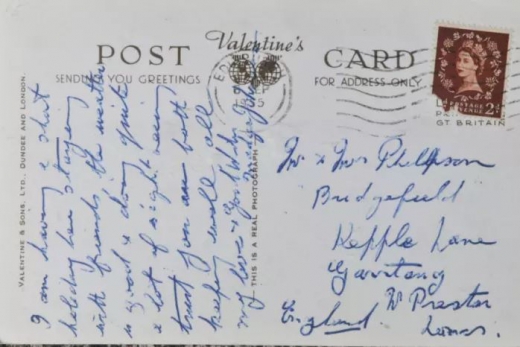 Valentine's
POST CARD
SENDING YOU GREETINGS
FOR ADDRESS ONLY
VALENTINE & SONS, LTD., DUNDEE AND LONDON.
THIS IS A REAL PHOTOGRAPH
I am having a short
holiday here staying
with friends, the weather
is good & doing quite
a lot of sight seeing
trust you are both
keeping well all
my love & God bless
POSTAGE
REVENUE
2D
GT BRITAIN
Mr & Mrs Phillipson
Bridgefield
Kepple Lane
Garstang
Nr Preston
England Lancs.